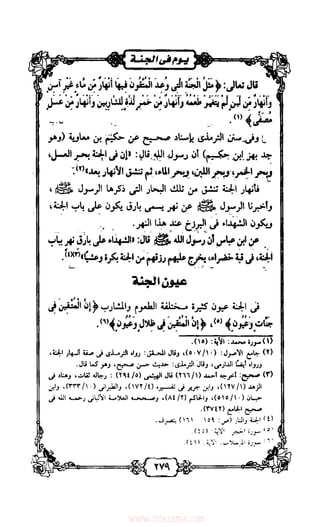 يوم في الجنة
قال تعالى: ﴿مَثَلُ الْجَنَّةِ الَّتِي وُعِدَ الْمُتَّقُونَ فِيهَا أَنْهَارٌ مِّن مَّاءٍ غَيْرِ آسِنٍ
وَأَنْهَارٌ مِّن لَّبَنٍ لَّمْ يَتَغَيَّرْ طَعْمُهُ وَأَنْهَارٌ مِّنْ خَمْرٍ لَّذَّةٍ لِّلشَّارِبِينَ وَأَنْهَارٌ مِّنْ عَسَلٍ
مُّصَفًّى﴾ (١).
وفي سنن الترمذي بإسناد صحيح عن حكيم بن معاوية (وهو
جد بهز بن حكيم) أن رسول الله قال: «إن في الجنة بحر العسل،
وبحر الخمر، وبحر اللبن، وبحر الماء، ثم تنشق الأنهار بعد»(٢).
فأنهار الجنة تنشق من تلك البحار التي ذكرها الرسول ﷺ،
وأخبرنا الرسول ﷺ عن نهر يسمى بارق يكون على باب الجنة،
ويكون الشهداء في البرزخ عند هذا النهر.
عن ابن عباس أن رسول الله ﷺ قال: «الشهداء على بارق نهر بباب
الجنة، في قبة خضراء، يخرج عليهم رزقهم من الجنة بكرة وعشيا»(٣)(٤).
عيون الجنة
في الجنة عيون كثيرة مختلفة الطعوم والمشارب ﴿إِنَّ الْمُتَّقِينَ فِي
جَنَّاتٍ وَعُيُونٍ﴾ (٥)، ﴿إِنَّ الْمُتَّقِينَ فِي ظِلَالٍ وَعُيُونٍ﴾(٦).
(١) سورة محمد: الآية: (١٥).
(٢) جامع الأصول: (٥٠٧/١٠)، وقال المحقق: رواه الترمذي في صفة أنهار الجنة،
ورواه أيضًا الدارمي، وقال الترمذي: حديث حسن صحيح، وهو كما قال.
(٣) صحيح: أخرجه أحمد (٢٦٦/١) قال الهيثمي (٢٩٤/٥): رجاله ثقات، وهناد في
الزهد (١٢٧/١)، وابن جرير في تفسيره (١٧٢/٤)، والطبراني (٣٣٣/١٠)، وابن
حبان (٥١٥/١٠)، والحاكم (٨٤/٢)، وصححه العلامة الألباني رحمه الله في
صحيح الجامع (٣٧٤٢).
(٤) الجنة والنار (ص: ١٥٩ ١٦١) بتصرف.
(٥) سورة الحجر: الآية: (٤٥).
(٦) سورة المرسلات: الآية: (٤١).
٢٧٩